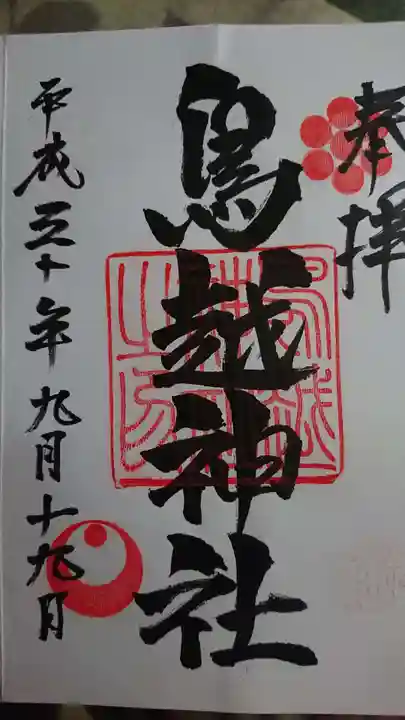 奉拝
鳥越神社
平成三十年九月十九日